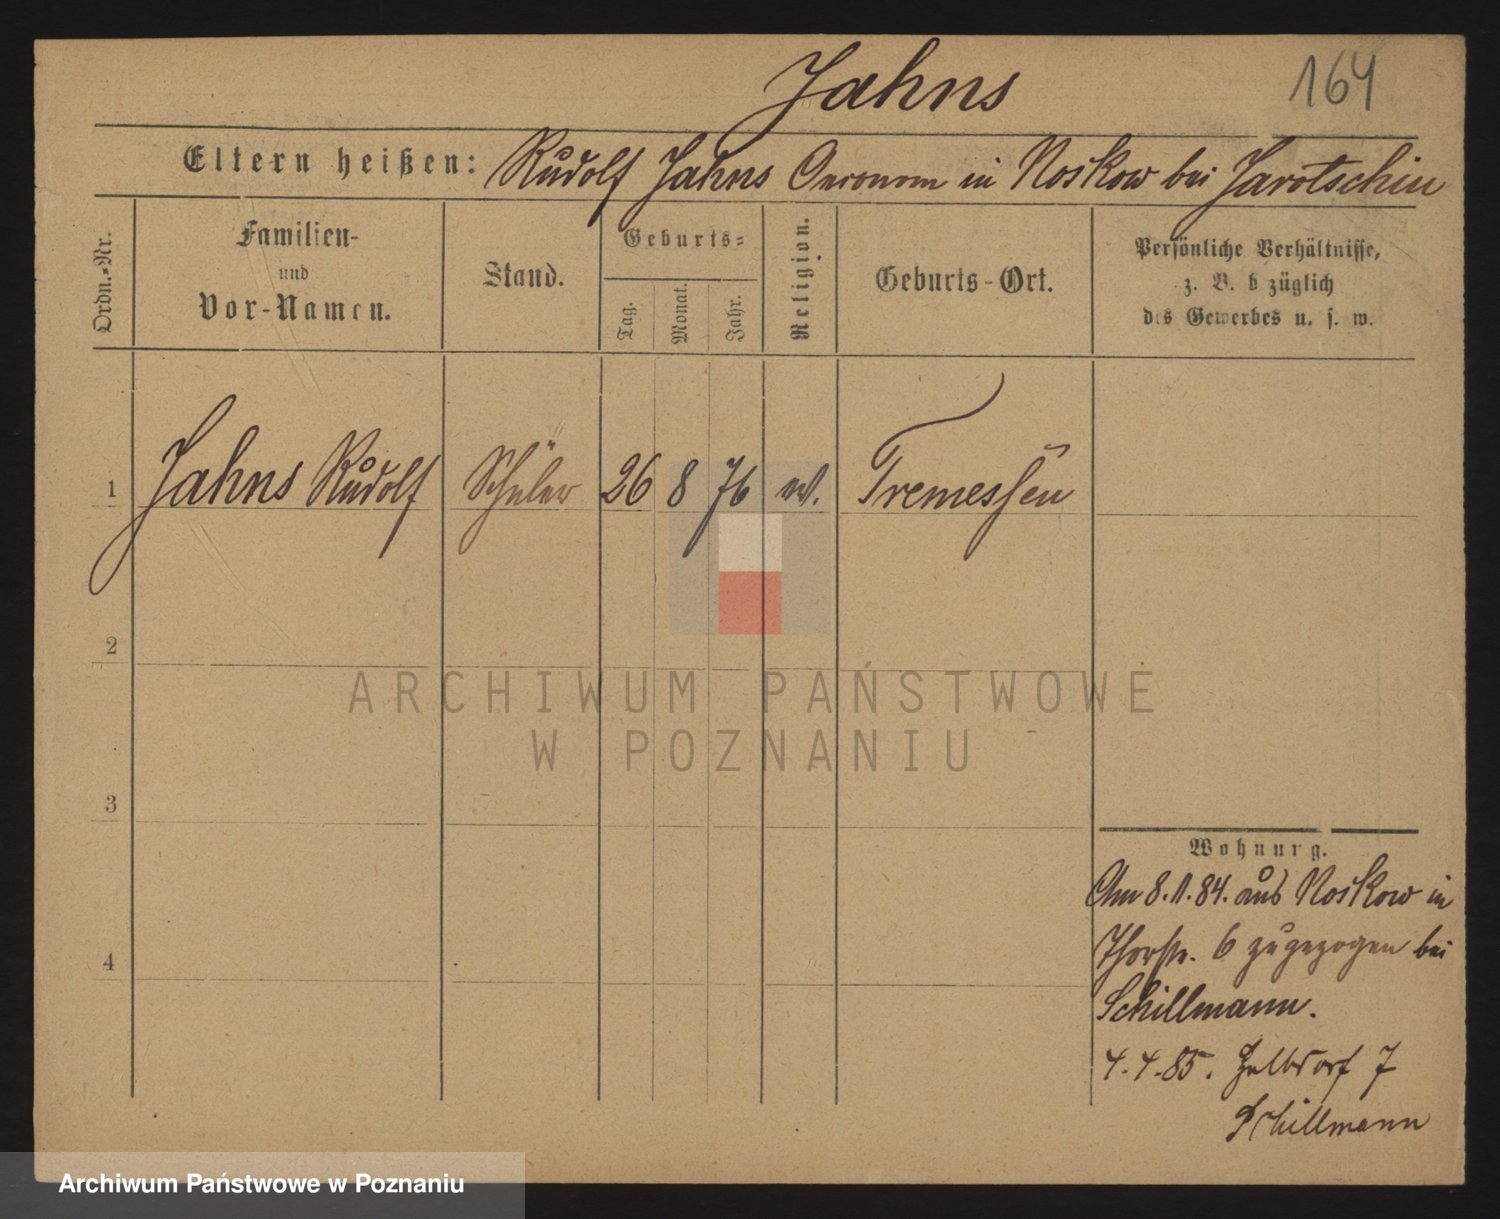 Jahns
164
Eltern heißen: Rudolf Jahns Oeconom in Noskow bei Jarotschin
Ordn.-Nr.
Familien-
und
Vor-Namen.
Stand.
Geburts-
Tag.
Monat.
Jahr.
Religion.
Geburts-Ort.
Persönliche Verhältnisse,
z. B. bezüglich
des Gewerbes u. s. w.
1 Jahns Rudolf Schüler 26 8 76 ev. Tremessen
2
3
4
Wohnung.
Am 8.1.84. aus Noskow in
Thorstr. 6 zugezogen bei
Schillmann.
4.4.85. Halbdorf 7
Schillmann
ARCHIWUM PAŃSTWOWE
W POZNANIU
Archiwum Państwowe w Poznaniu